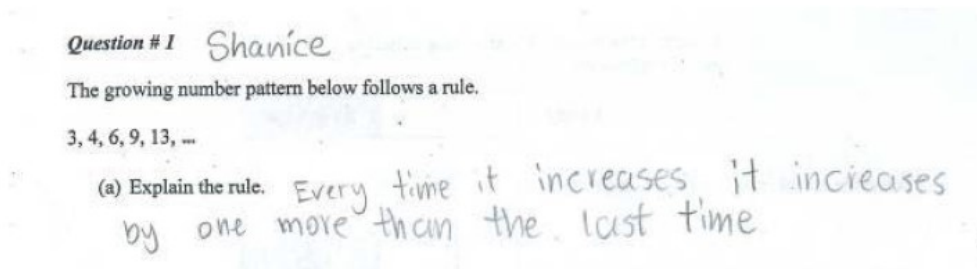 Question # 1 Shanice
The growing number pattern below follows a rule.
3, 4, 6, 9, 13, ...
(a) Explain the rule. Every time it increases it increases
by one more than the last time